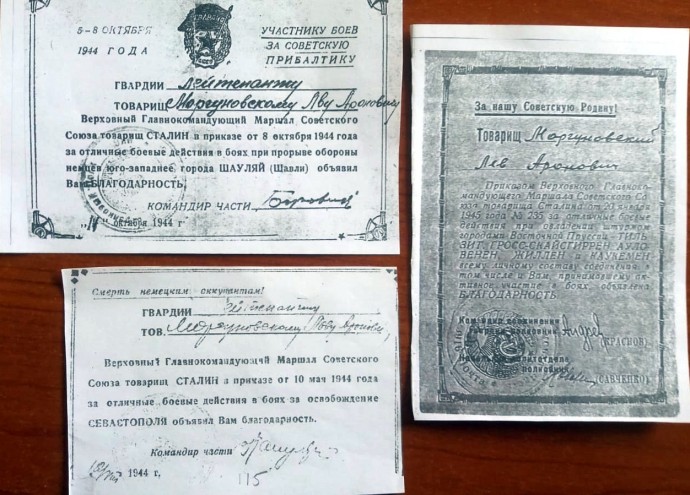 5-8 ОКТЯБРЯ
1944 ГОДА
УЧАСТНИКУ БОЕВ
ЗА СОВЕТСКУЮ
ПРИБАЛТИКУ
ГВАРДИИ Лейтенанту
ТОВАРИЩ Моргуновскому Льву Ароновичу
Верховный Главнокомандующий Маршал Советского
Союза товарищ СТАЛИН в приказе от 8 октября 1944 года
за отличные боевые действия в боях при прорыве обороны
немцев юго-западнее города ШАУЛЯЙ (Шавли) объявил
Вам БЛАГОДАРНОСТЬ.
КОМАНДИР ЧАСТИ
октября 1944 г.
Смерть немецким оккупантам!
ГВАРДИИ лейтенанту
ТОВ. Моргуновскому Льву
Верховный Главнокомандующий Маршал Советского
Союза товарищ СТАЛИН в приказе от 10 мая 1944 года
за отличные боевые действия в боях за освобождение
СЕВАСТОПОЛЯ объявил Вам благодарность.
Командир части
1944 г,
115
За нашу Советскую Родину!
Товарищ Моргуновский
Лев Аронович
Приказом Верховного Главноко-
мандующего Маршала Советского Со-
юза товарища Сталина от
1945 года № 235 за отличные боевые
действия при овладении штурмом
городами Восточной Пруссии — ТИЛЬ-
ЗИТ, ГРОСС-СКАЙСГИРРЕН, АУЛО-
ВЕНЕН, ЖИЛЛЕН и КАУКЕМЕН
всему личному составу соединения, в
том числе и Вам, принимавшему ак-
тивное участие в боях, объявлена
БЛАГОДАРНОСТЬ.
Командир соединения
полковник
(КРАСНОВ)
полковник
(САВЧЕНКО)